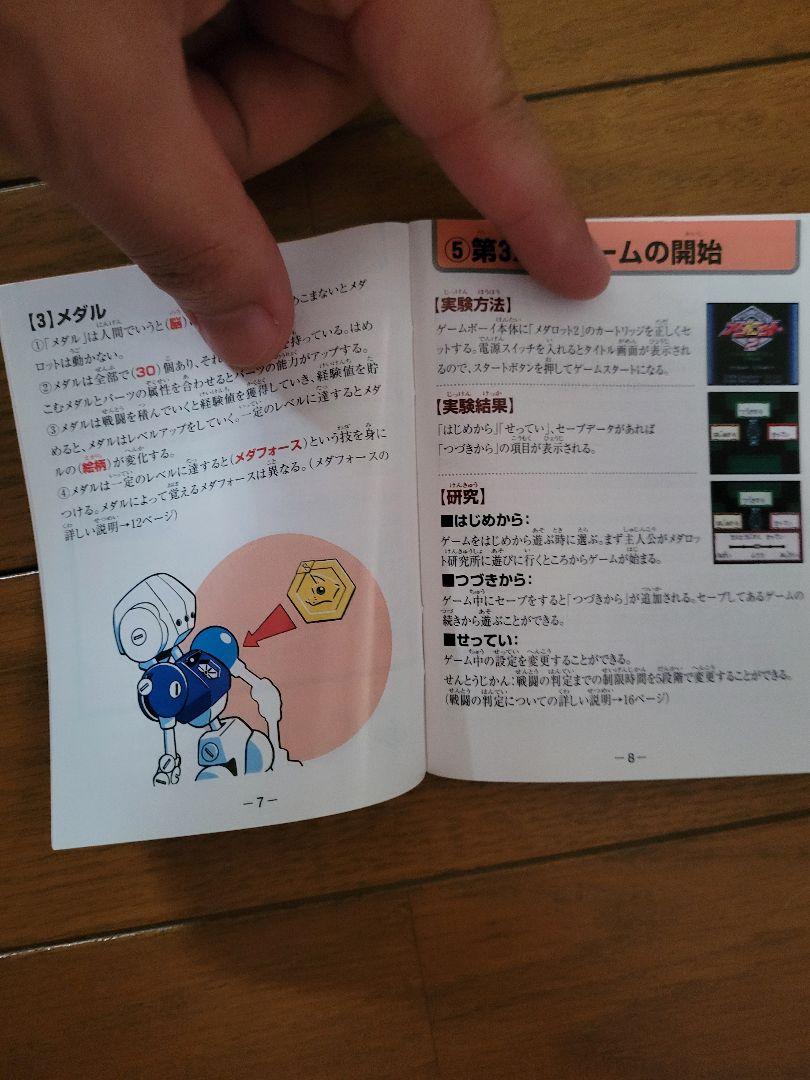 【3】メダル
①「メダル」は人間でいうと(脳) めこまないとメダ
ロットは動かない。
②メダルは全部で(30)個あり、それ 持っている。はめ
こむメダルとパーツの属性を合わせるとパーツの能力がアップする。
③メダルは戦闘を積んでいくと経験値を獲得していき、経験値を貯
めると、メダルはレベルアップをしていく。一定のレベルに達するとメダ
ルの(絵柄)が変化する。
④メダルは一定のレベルに達すると(メダフォース)という技を身に
つける。メダルによって覚えるメダフォースは異なる。(メダフォースの
詳しい説明→12ページ)
－7－
⑤第3 ームの開始
【実験方法】
ゲームボーイ本体に「メダロット2」のカートリッジを正しくセ
ットする。電源スイッチを入れるとタイトル画面が表示され
るので、スタートボタンを押してゲームスタートになる。
【実験結果】
「はじめから」「せってい」、セーブデータがあれば
「つづきから」の項目が表示される。
【研究】
■はじめから：
ゲームをはじめから遊ぶ時に選ぶ。まず主人公がメダロッ
ト研究所に遊びに行くところからゲームが始まる。
■つづきから：
ゲーム中にセーブをすると「つづきから」が追加される。セーブしてあるゲームの
続きから遊ぶことができる。
■せってい：
ゲーム中の設定を変更することができる。
せんとうじかん：戦闘の判定までの制限時間を5段階で変更することができる。
(戦闘の判定についての詳しい説明→16ページ)
－8－